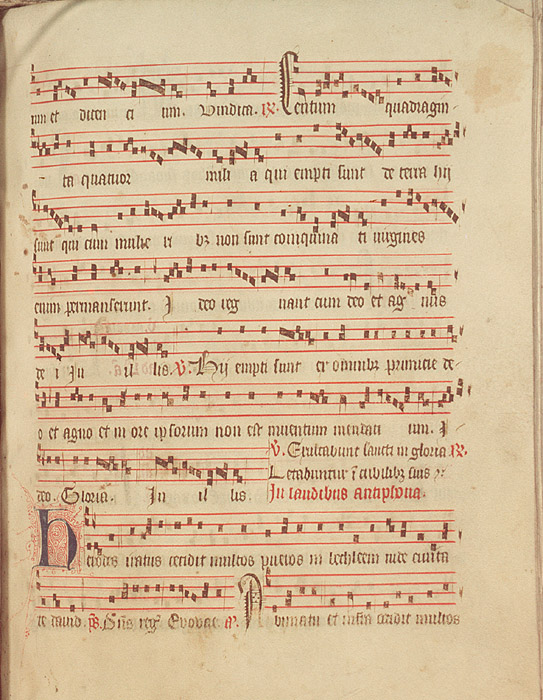 num et dicen ci um. Vindica. ℟. Centum quadragin-
ta quatuor mili a qui empti sunt de terra hij
sunt qui cum mulie ri bꝫ non sunt coinquina ti uirgines
enim permanserunt. I deo reg nant cum deo et ag nus
de i In il lis. ꝟ. Hij empti sunt ex omnibꝫ primicie de-
o et agno et in ore ipsorum non est inuentum mendati um. I-
ꝟ. Exultabunt sancti in gloria ℟.
deo. Gloria. In il lis. Letabuntur ī cubilibꝫ suis
In laudibus antiphona.
Herodes iratus occidit multos pueros in bethleem iude ciuita
te dauid. ps. Dns reg. Euouae. a. A bimatu et infra occidit multos